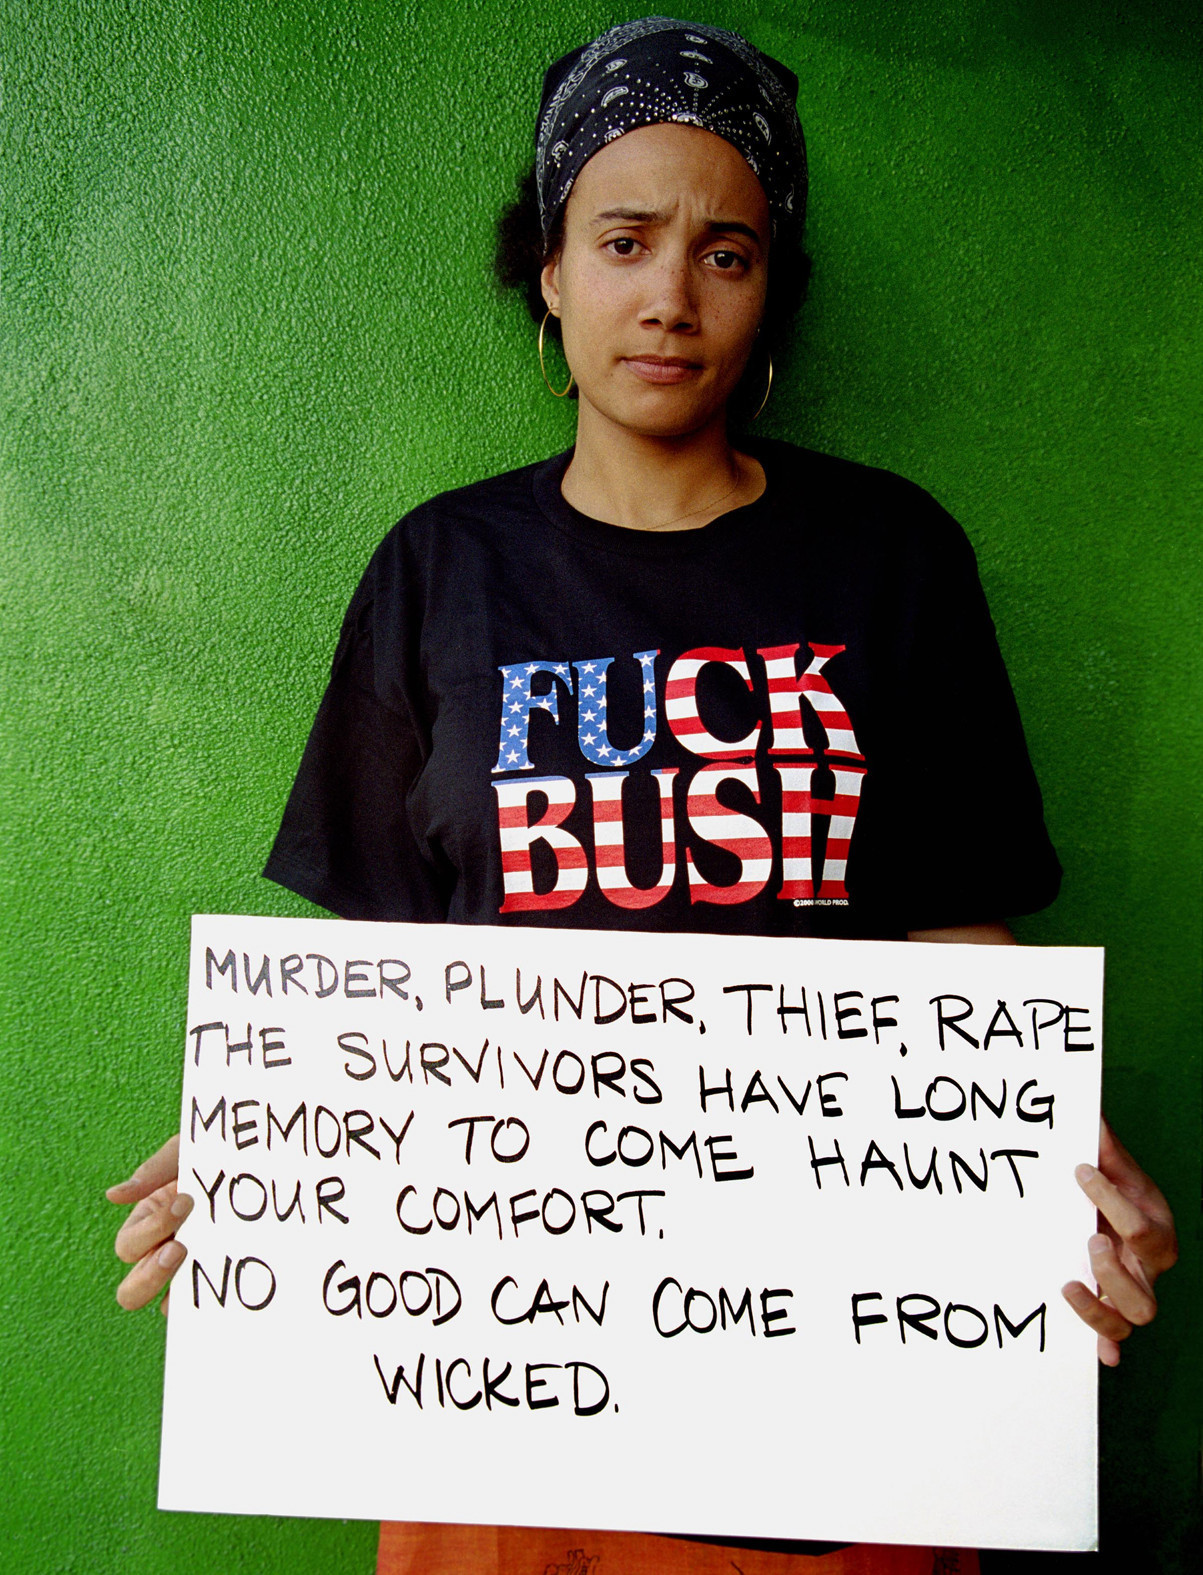 FUCK
BUSH
MURDER, PLUNDER, THIEF, RAPE
THE SURVIVORS HAVE LONG
MEMORY TO COME HAUNT
YOUR COMFORT.
NO GOOD CAN COME FROM
WICKED.